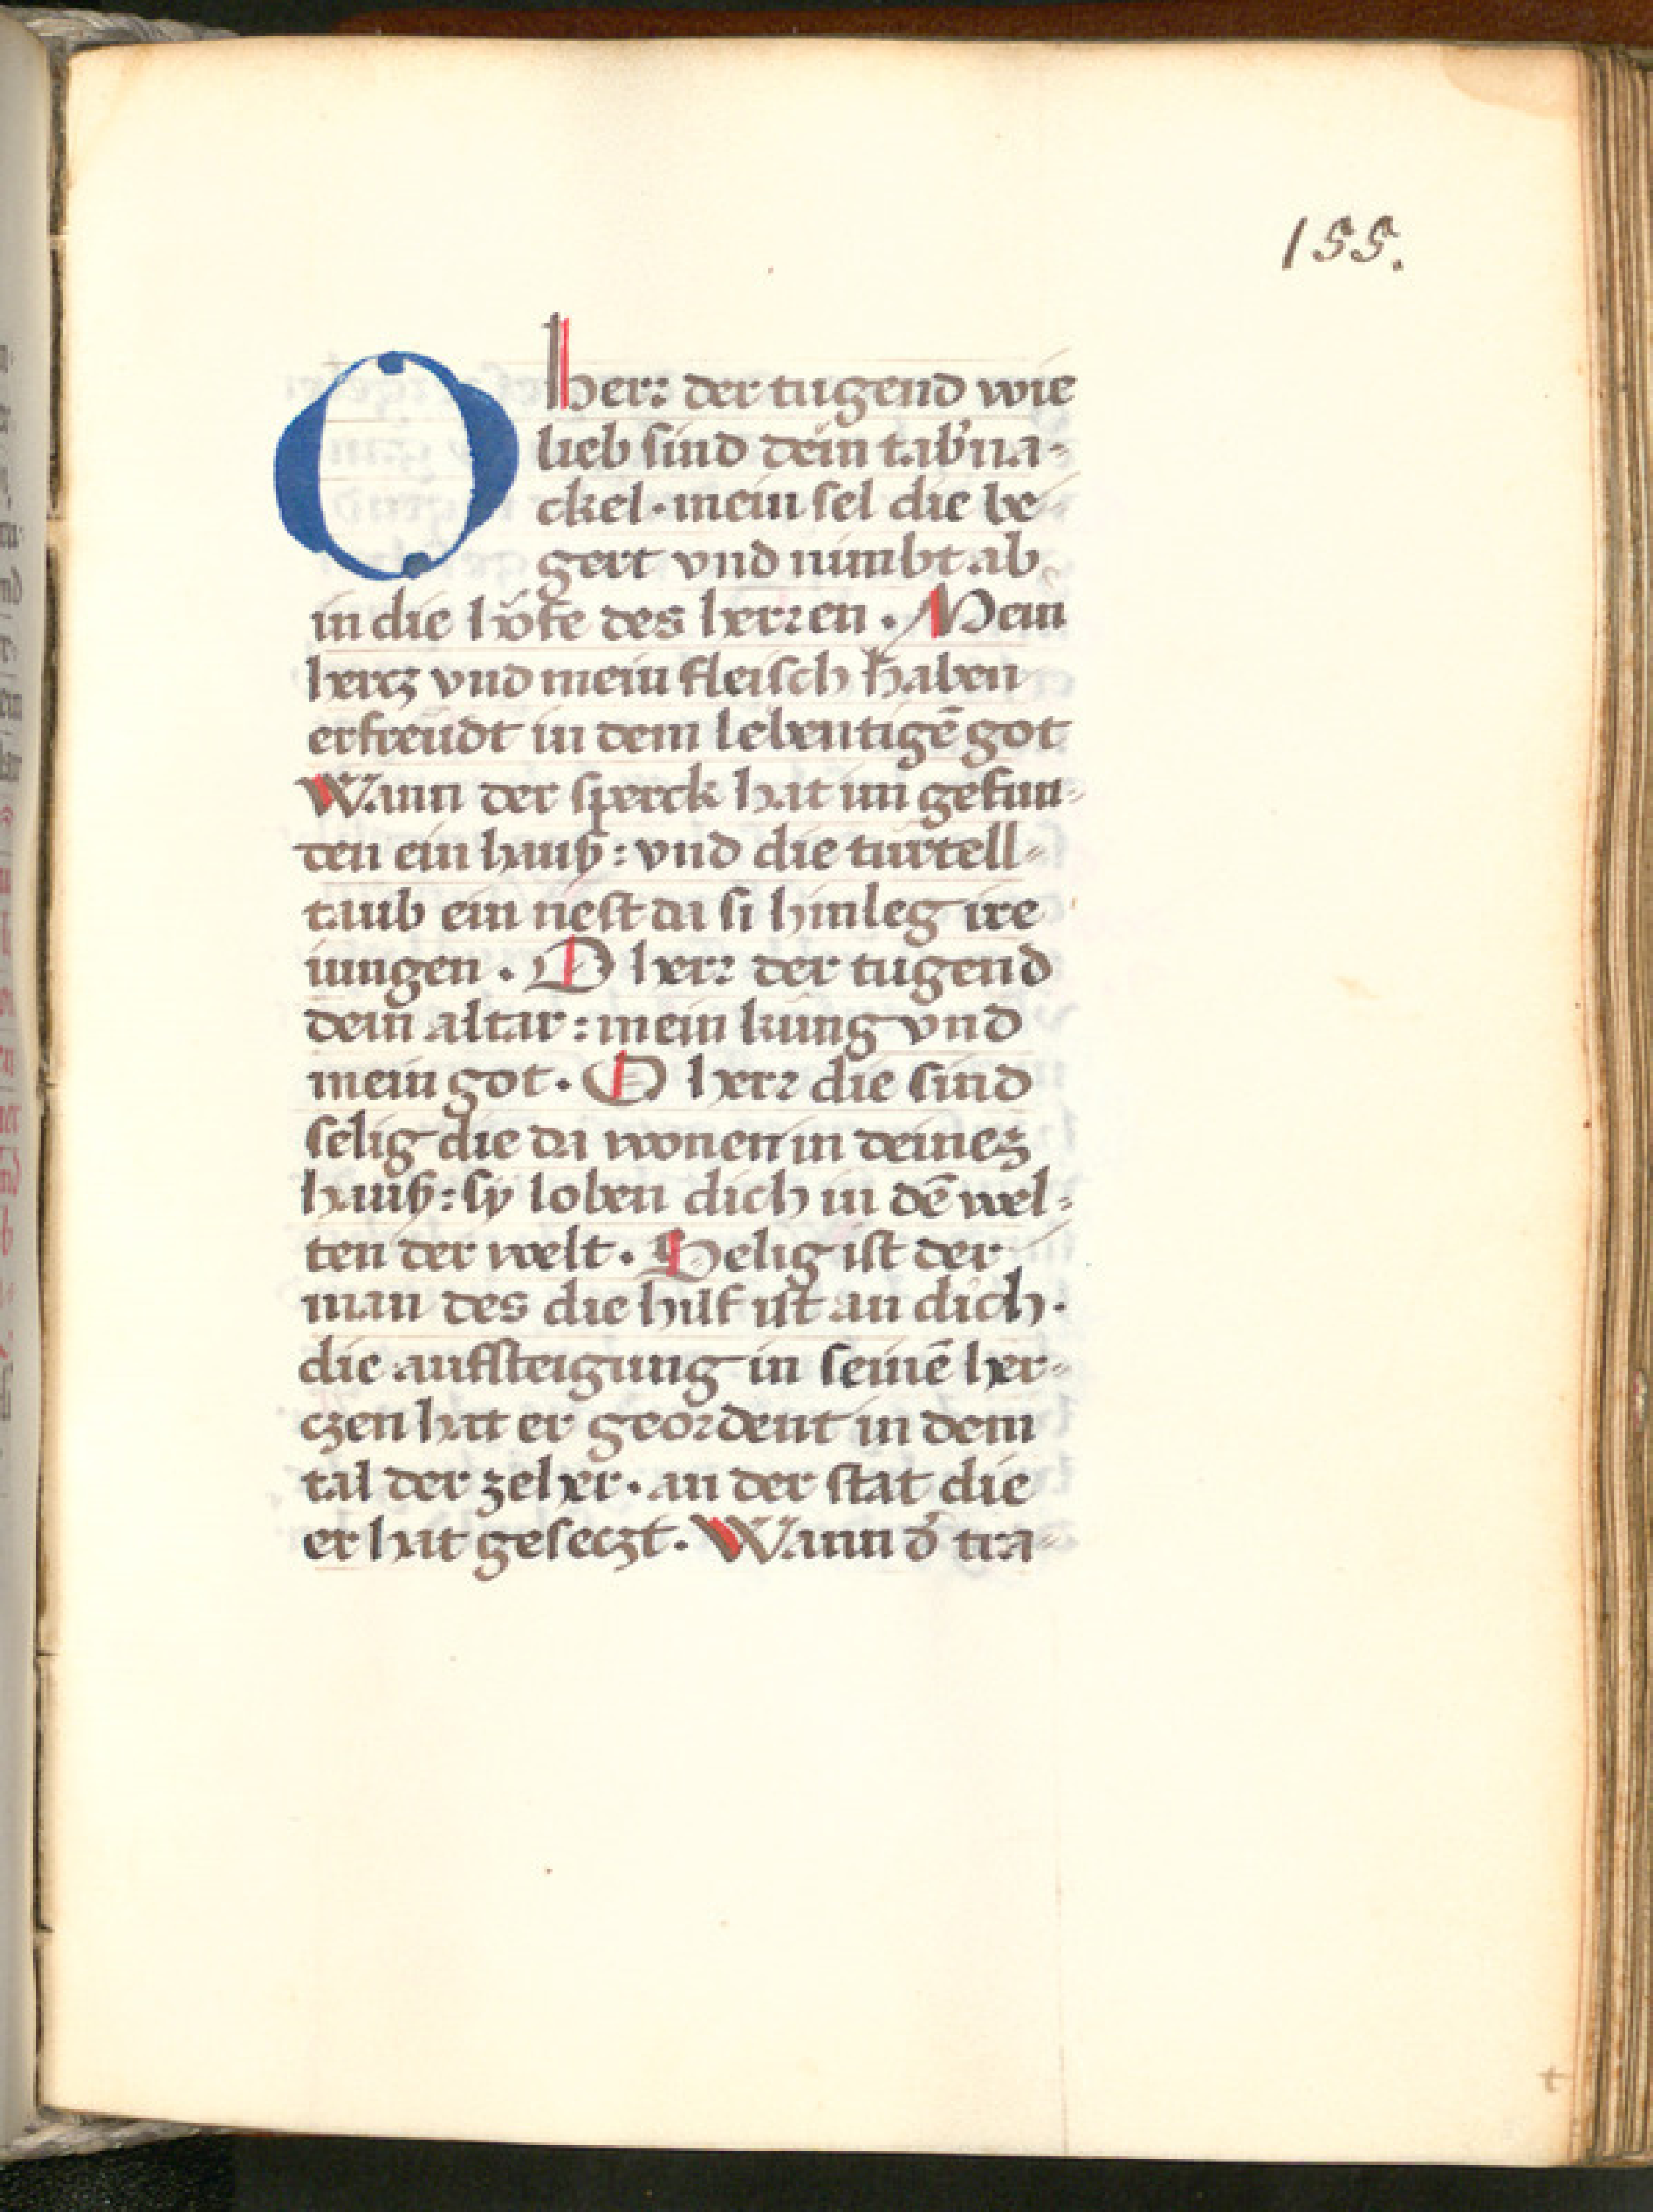 155.
O herr der tugend wie
lieb sind dein tab'na-
ckel · mein sel die be-
gert vnd nimbt ab
in die höfe des herren · Mein
hercz vnd mein fleisch haben
erfreüdt in dem lebentigē got
Wann der sperck hat im gefun-
den ein hauß : vnd die turtell-
taub ein nest da si hinleg ire
iungen · O herr der tugend
dein altar : mein küng vnd
mein got · O herr die sind
selig die da wonen in deinez
hauß : sy loben dich in dē wel-
ten der welt · Selig ist der
man des die hilf ist an dich ·
die aufsteigung in seinē her-
czen hat er geordent in dem
tal der zeher · an der stat die
er hat geseczt · Wann d' tra-
t